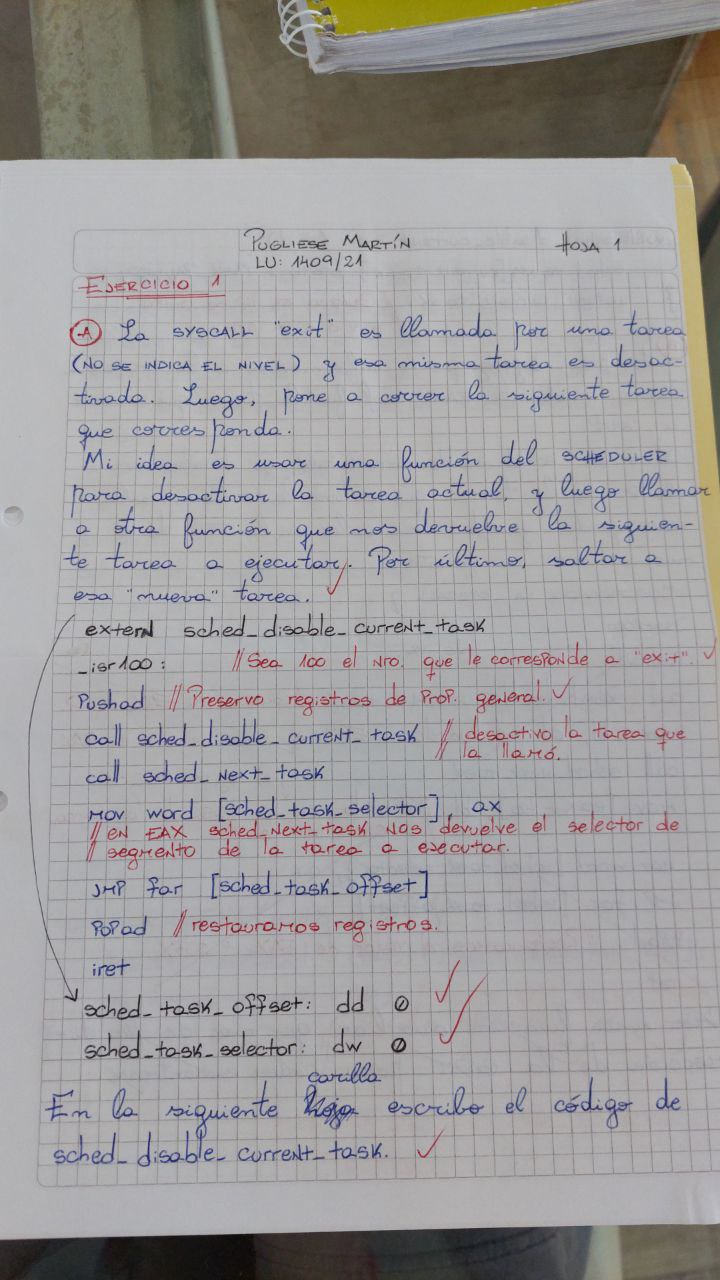 PUGLIESE MARTÍN
HOJA 1
LU: 1409/21
EJERCICIO 1
A La SYSCALL "exit" es llamada por una tarea
(NO SE INDICA EL NIVEL) y esa misma tarea es desac-
tivada. Luego, pone a correr la siguiente tarea
que corresponda.
Mi idea es usar una función del SCHEDULER
para desactivar la tarea actual, y luego llamar
a otra función que nos devuelve la siguien-
te tarea a ejecutar. Por último, saltar a
esa "nueva" tarea.
extern sched_disable_current_task
_isr100: //Sea 100 el Nro. que le corresponde a "exit".
Pushad //Preservo registros de Prop. general.
call sched_disable_current_task // desactivo la tarea que
// la llamó.
call sched_next_task
MOV word [sched_task_selector], ax
//EN EAX sched_next_task NOS devuelve el selector de
// segmento de la tarea a ejecutar.
JMP far [sched_task_offset]
POPad //restauramos registros.
iret
sched_task_offset: dd 0
sched_task_selector: dw 0
carilla
En la siguiente escribo el código de
sched_disable_current_task.